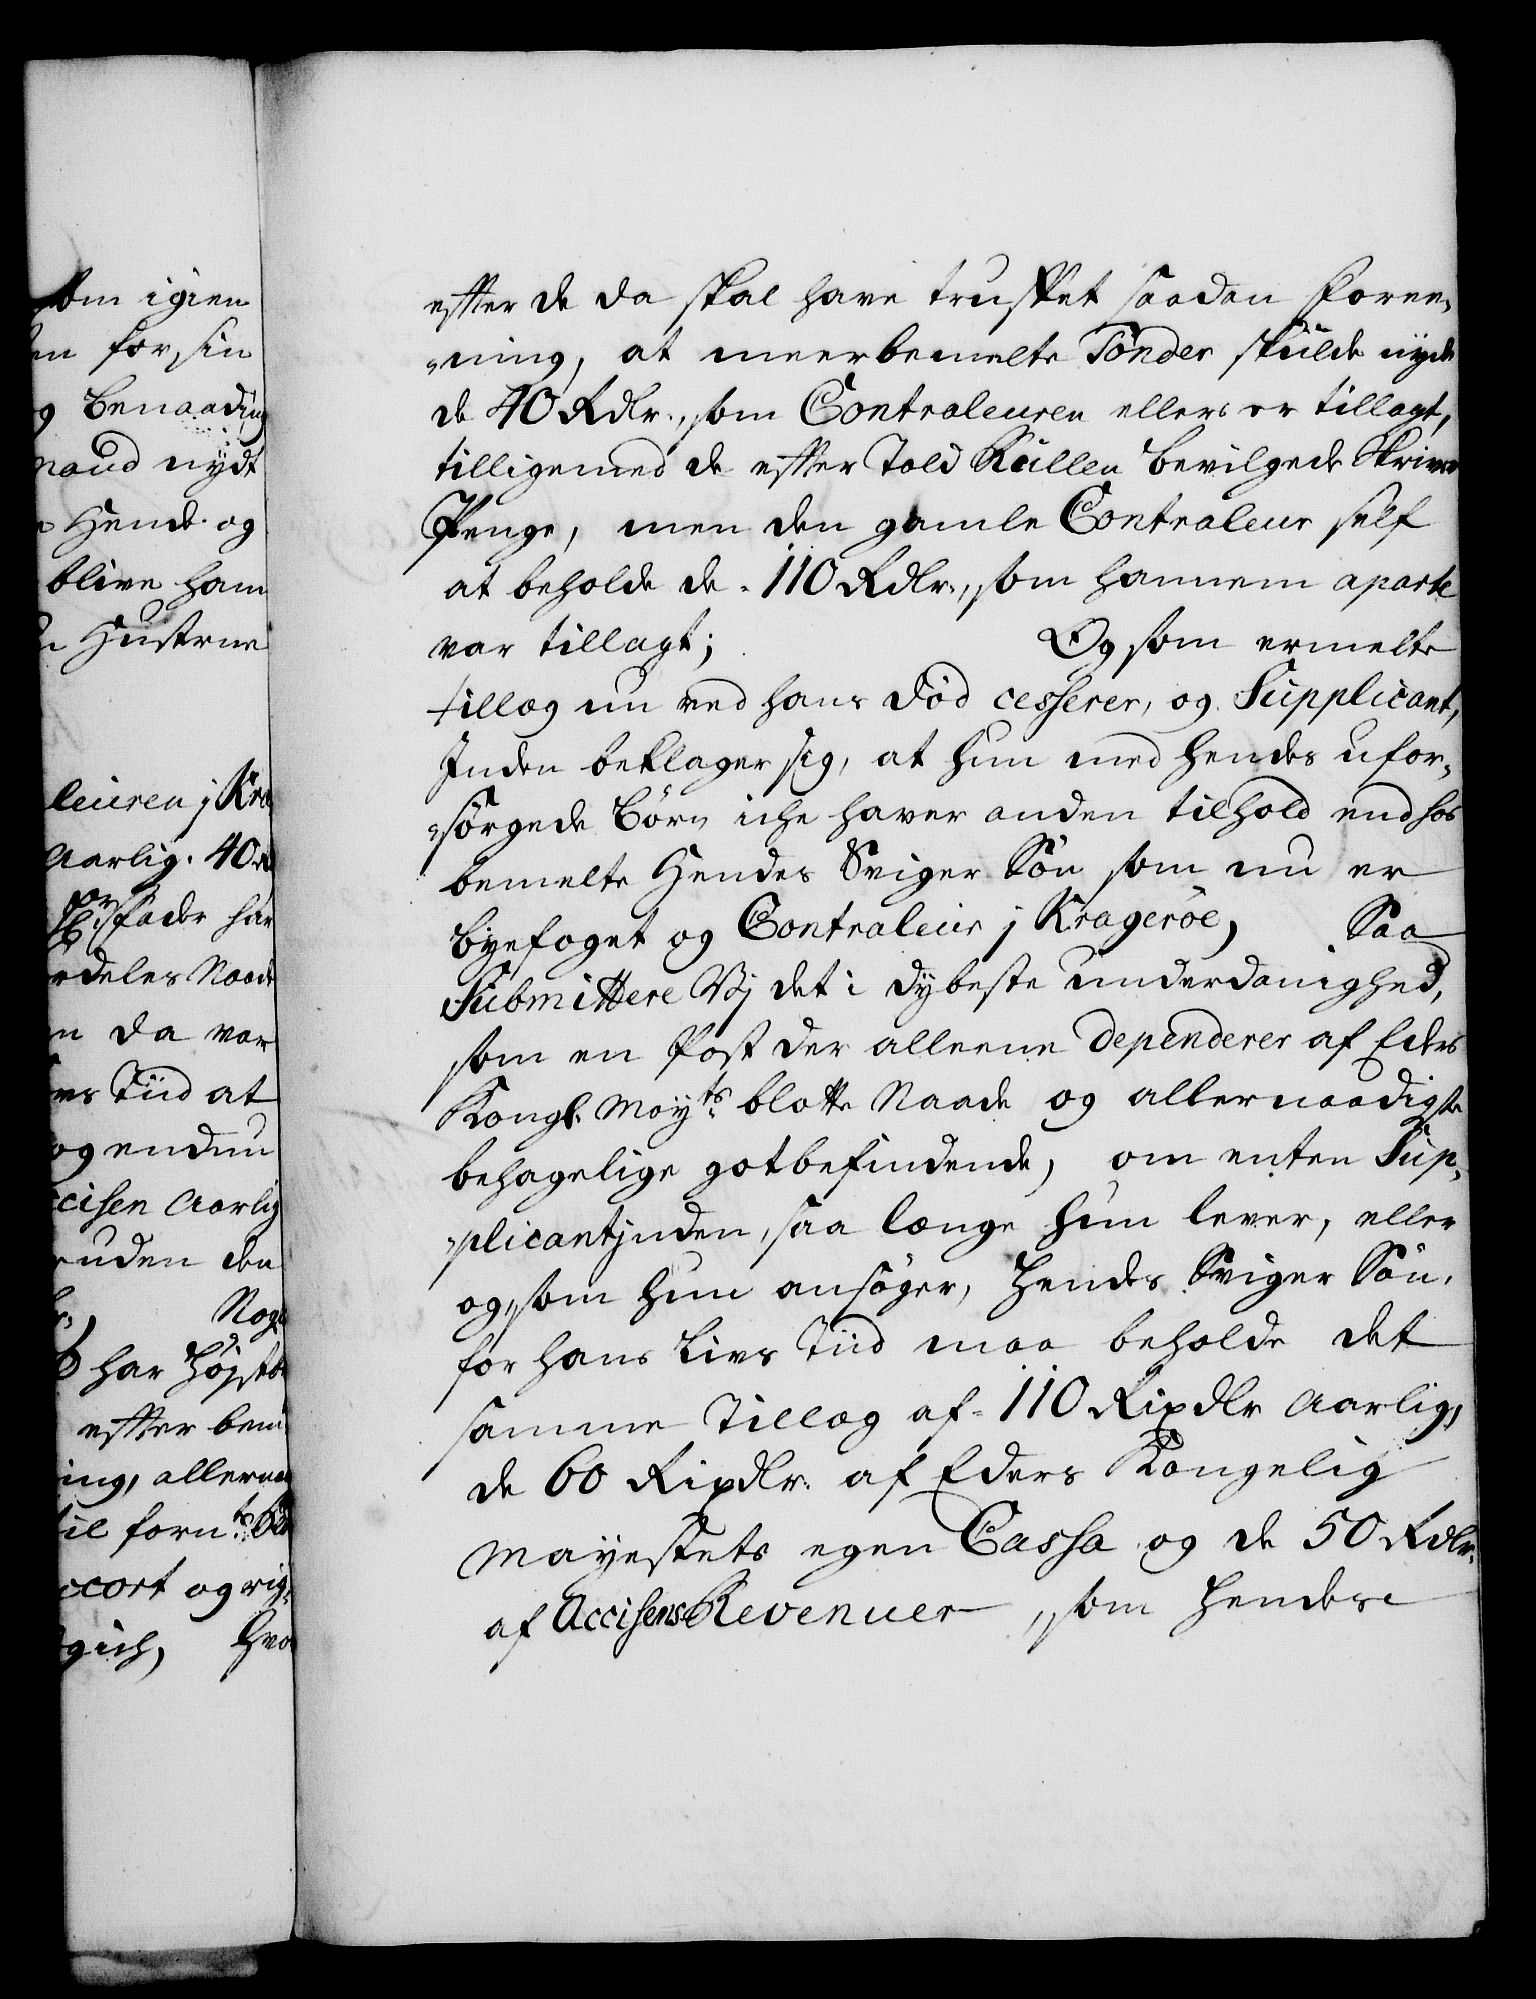 om igien
en for sin
g benaading
naad nydt
Hende og
blive ham
Hustrue
leuren j Kra
aarlig. 40 R
Fader har
rdeles Naade
n da var
rs Tiid at
og endnu
ccisen aarlig
uden den
Nog
har Højst
effter bem
ing, allerna
til forn:te
ccort og rig
gich, Hvo
effter de da skal have truffet saadan foree-
-ning, at meerbemelte Tönder skulde nyde
de 40 Rdlr., som Contraleuren ellers er tillagt,
tilligemed de effter Told Rullen bevilgede Skriver
Penge, men den gamle Contraleur self
at beholde de 110 Rdlr., som hannem aparte
var tillagt; Og som ermelte
tillæg nu ved hans død cesserer, og Supplicant,
Inden beklager sig, at hun med hendes ufor-
-sörgede Börn iche haver anden tilhold end hos
bemelte Hendes Sviger Sön som nu er
byefoget og Contraleur j Krageröe, Saa
Submittere Vj det i dybeste underdanighed,
som en Post der alleene dependerer af Eders
Kongl. Mayts blotte Naade og allernaadigste
behagelige gotbefindende, om enten Sup-
-plicantjnden, saa længe hun lever, eller
og, som hun ansöger, Hendes Sviger Sön,
for hans Livs Tiid maa beholde det
samme Tillæg af 110 Rixdlr aarlig,
de 60 Rixdlr. af Eders Kongelig
Mayestets egen Cassa og de 50 Rdlr.
af Accisens Revenuer, som Hendes